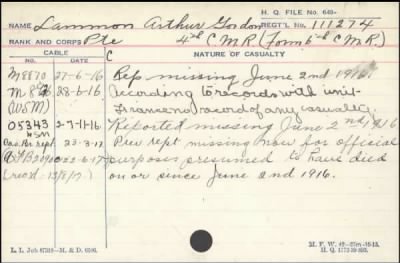 H. Q. FILE No. 649-
NAME Lammon Arthur Gordon REGT'L No. 111274
RANK AND CORPS Pte 4th C M R. (Form 6th C M R.)
CABLE C NATURE OF CASUALTY
M8870 27-6-16 Rep missing June 2nd 1916.
M 28-6-16 According to records with unit
(WSM) France no record of any casualty.
05343 2-11-16 Reported missing June 2nd, 1916
WSM
Cas. Br. rept 23-3-17 Prev rept missing now for official
AFB2090 22-6-17 purposes presumed to have died
(rec'd. 13/8/17.) on or since June 2nd 1916.
L. L. Job 87319—M. & D. 6596.
M. F. W. 42
H. Q. 1772-39-893.